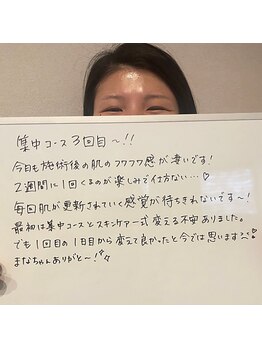 集中コース3回目〜!!
今日も施術後の肌のフワフワ感が凄いです!
2週間に1回くるのが楽しみで仕方ない…♡
毎回肌が更新されていく感覚が待ちきれないです〜!
最初は集中コースとスキンケア一式変える不安ありました。
でも1回目の1日目から変えて良かったと今では思います
まなちゃんありがと〜!